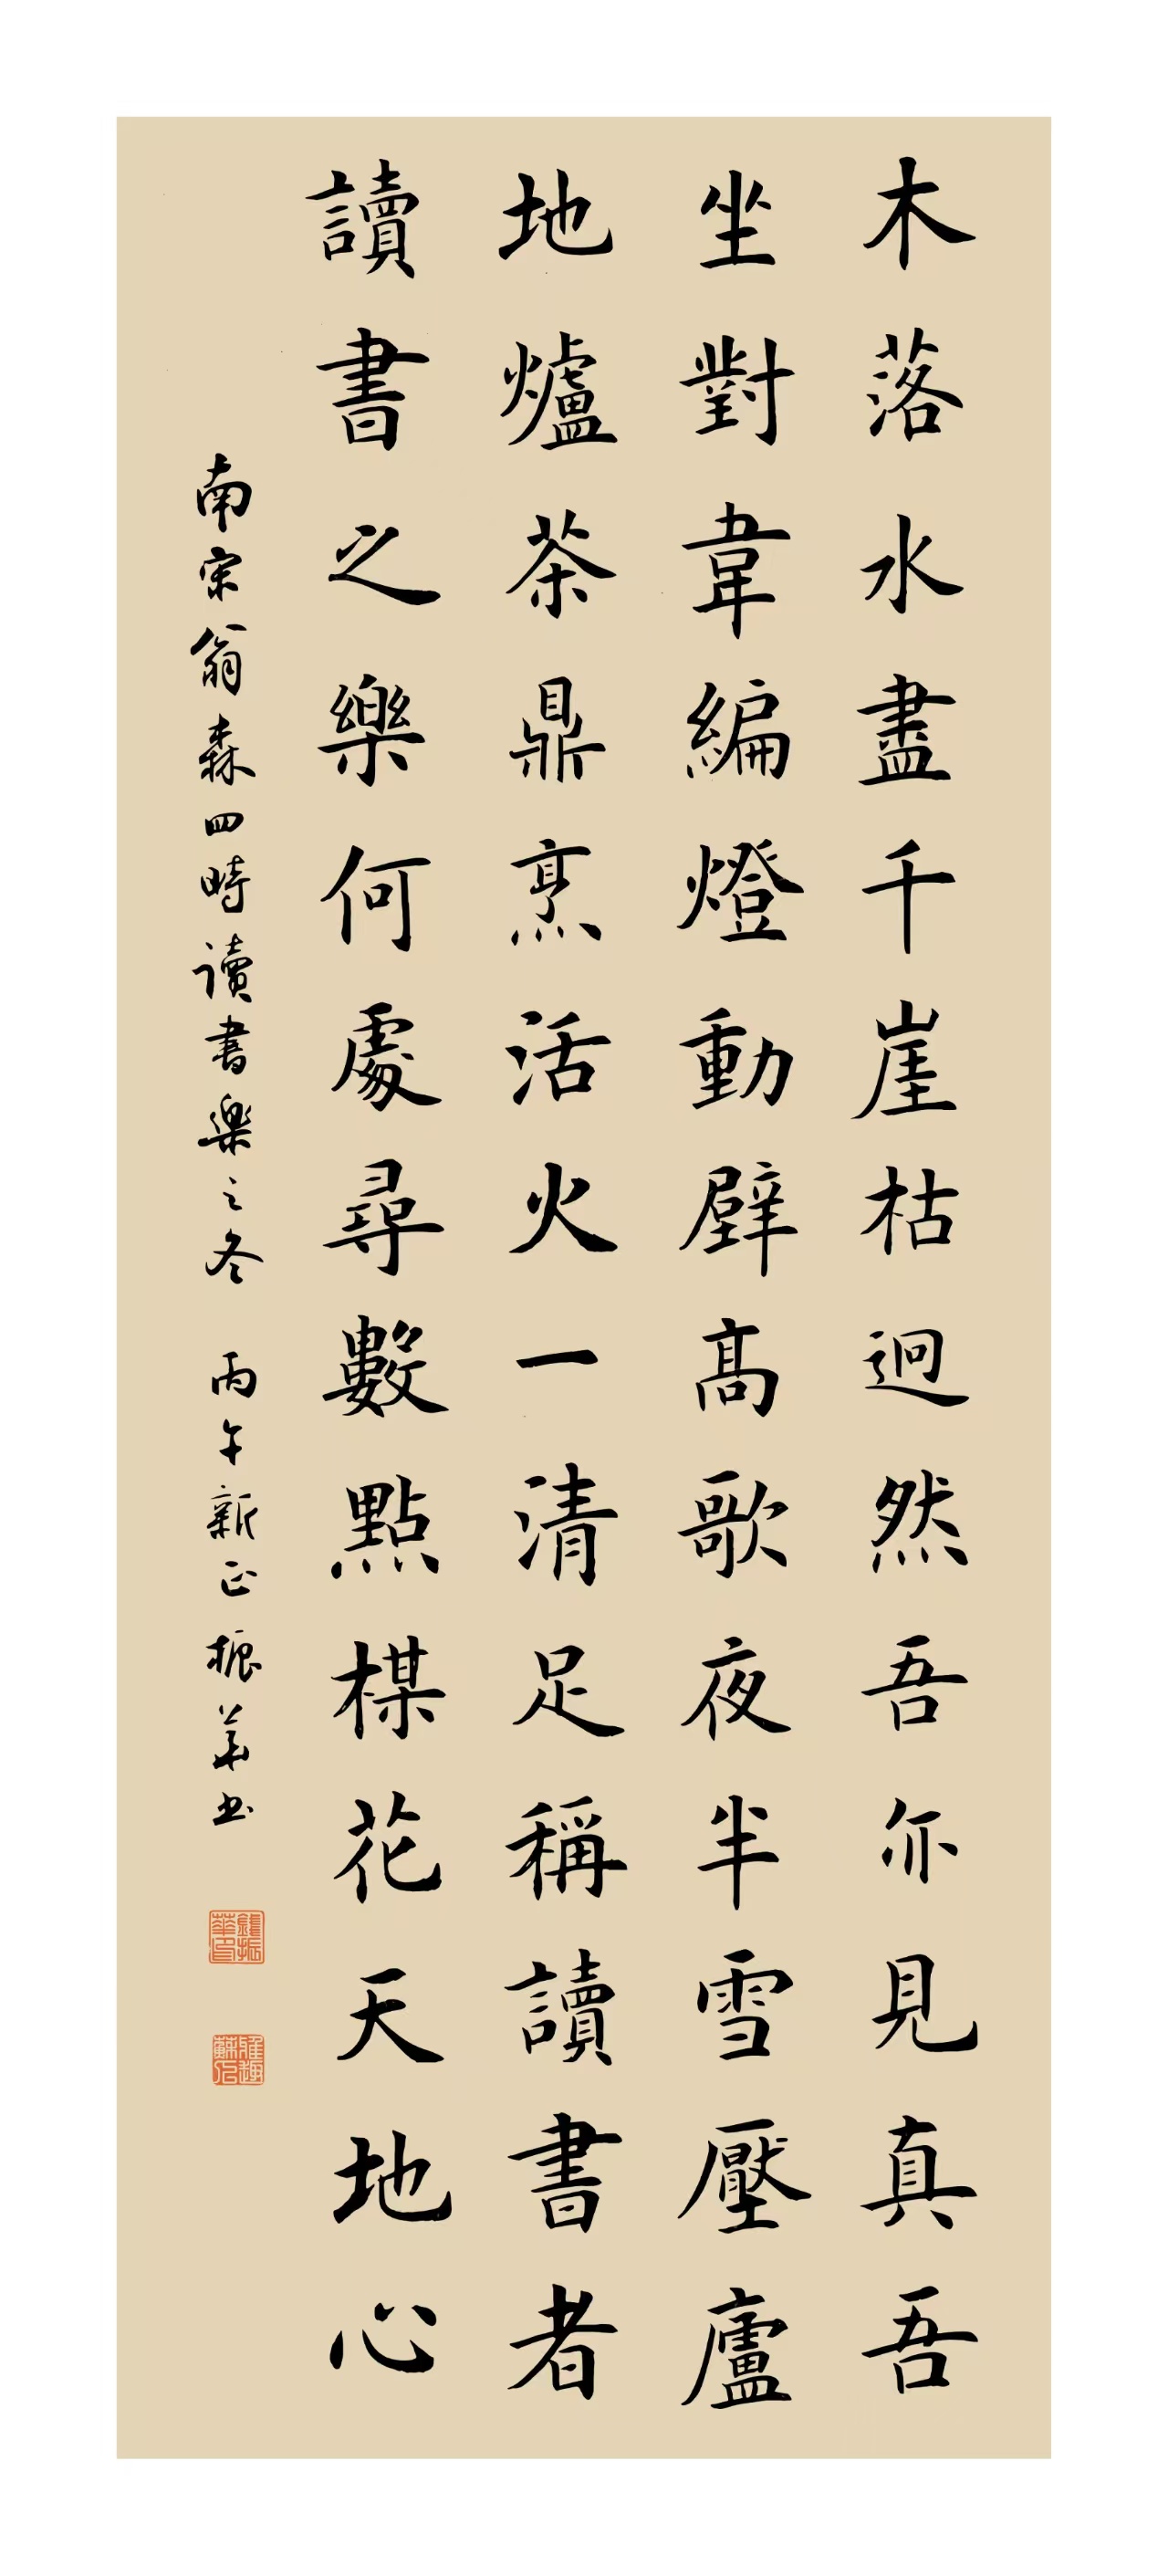 木落水盡千崖枯迥然吾亦見真吾
坐對韋編燈動壁高歌夜半雪壓廬
地爐茶鼎烹活火一清足稱讀書者
讀書之樂何處尋數點楳花天地心
南宋翁森四時读書樂之冬 丙午新正振華书